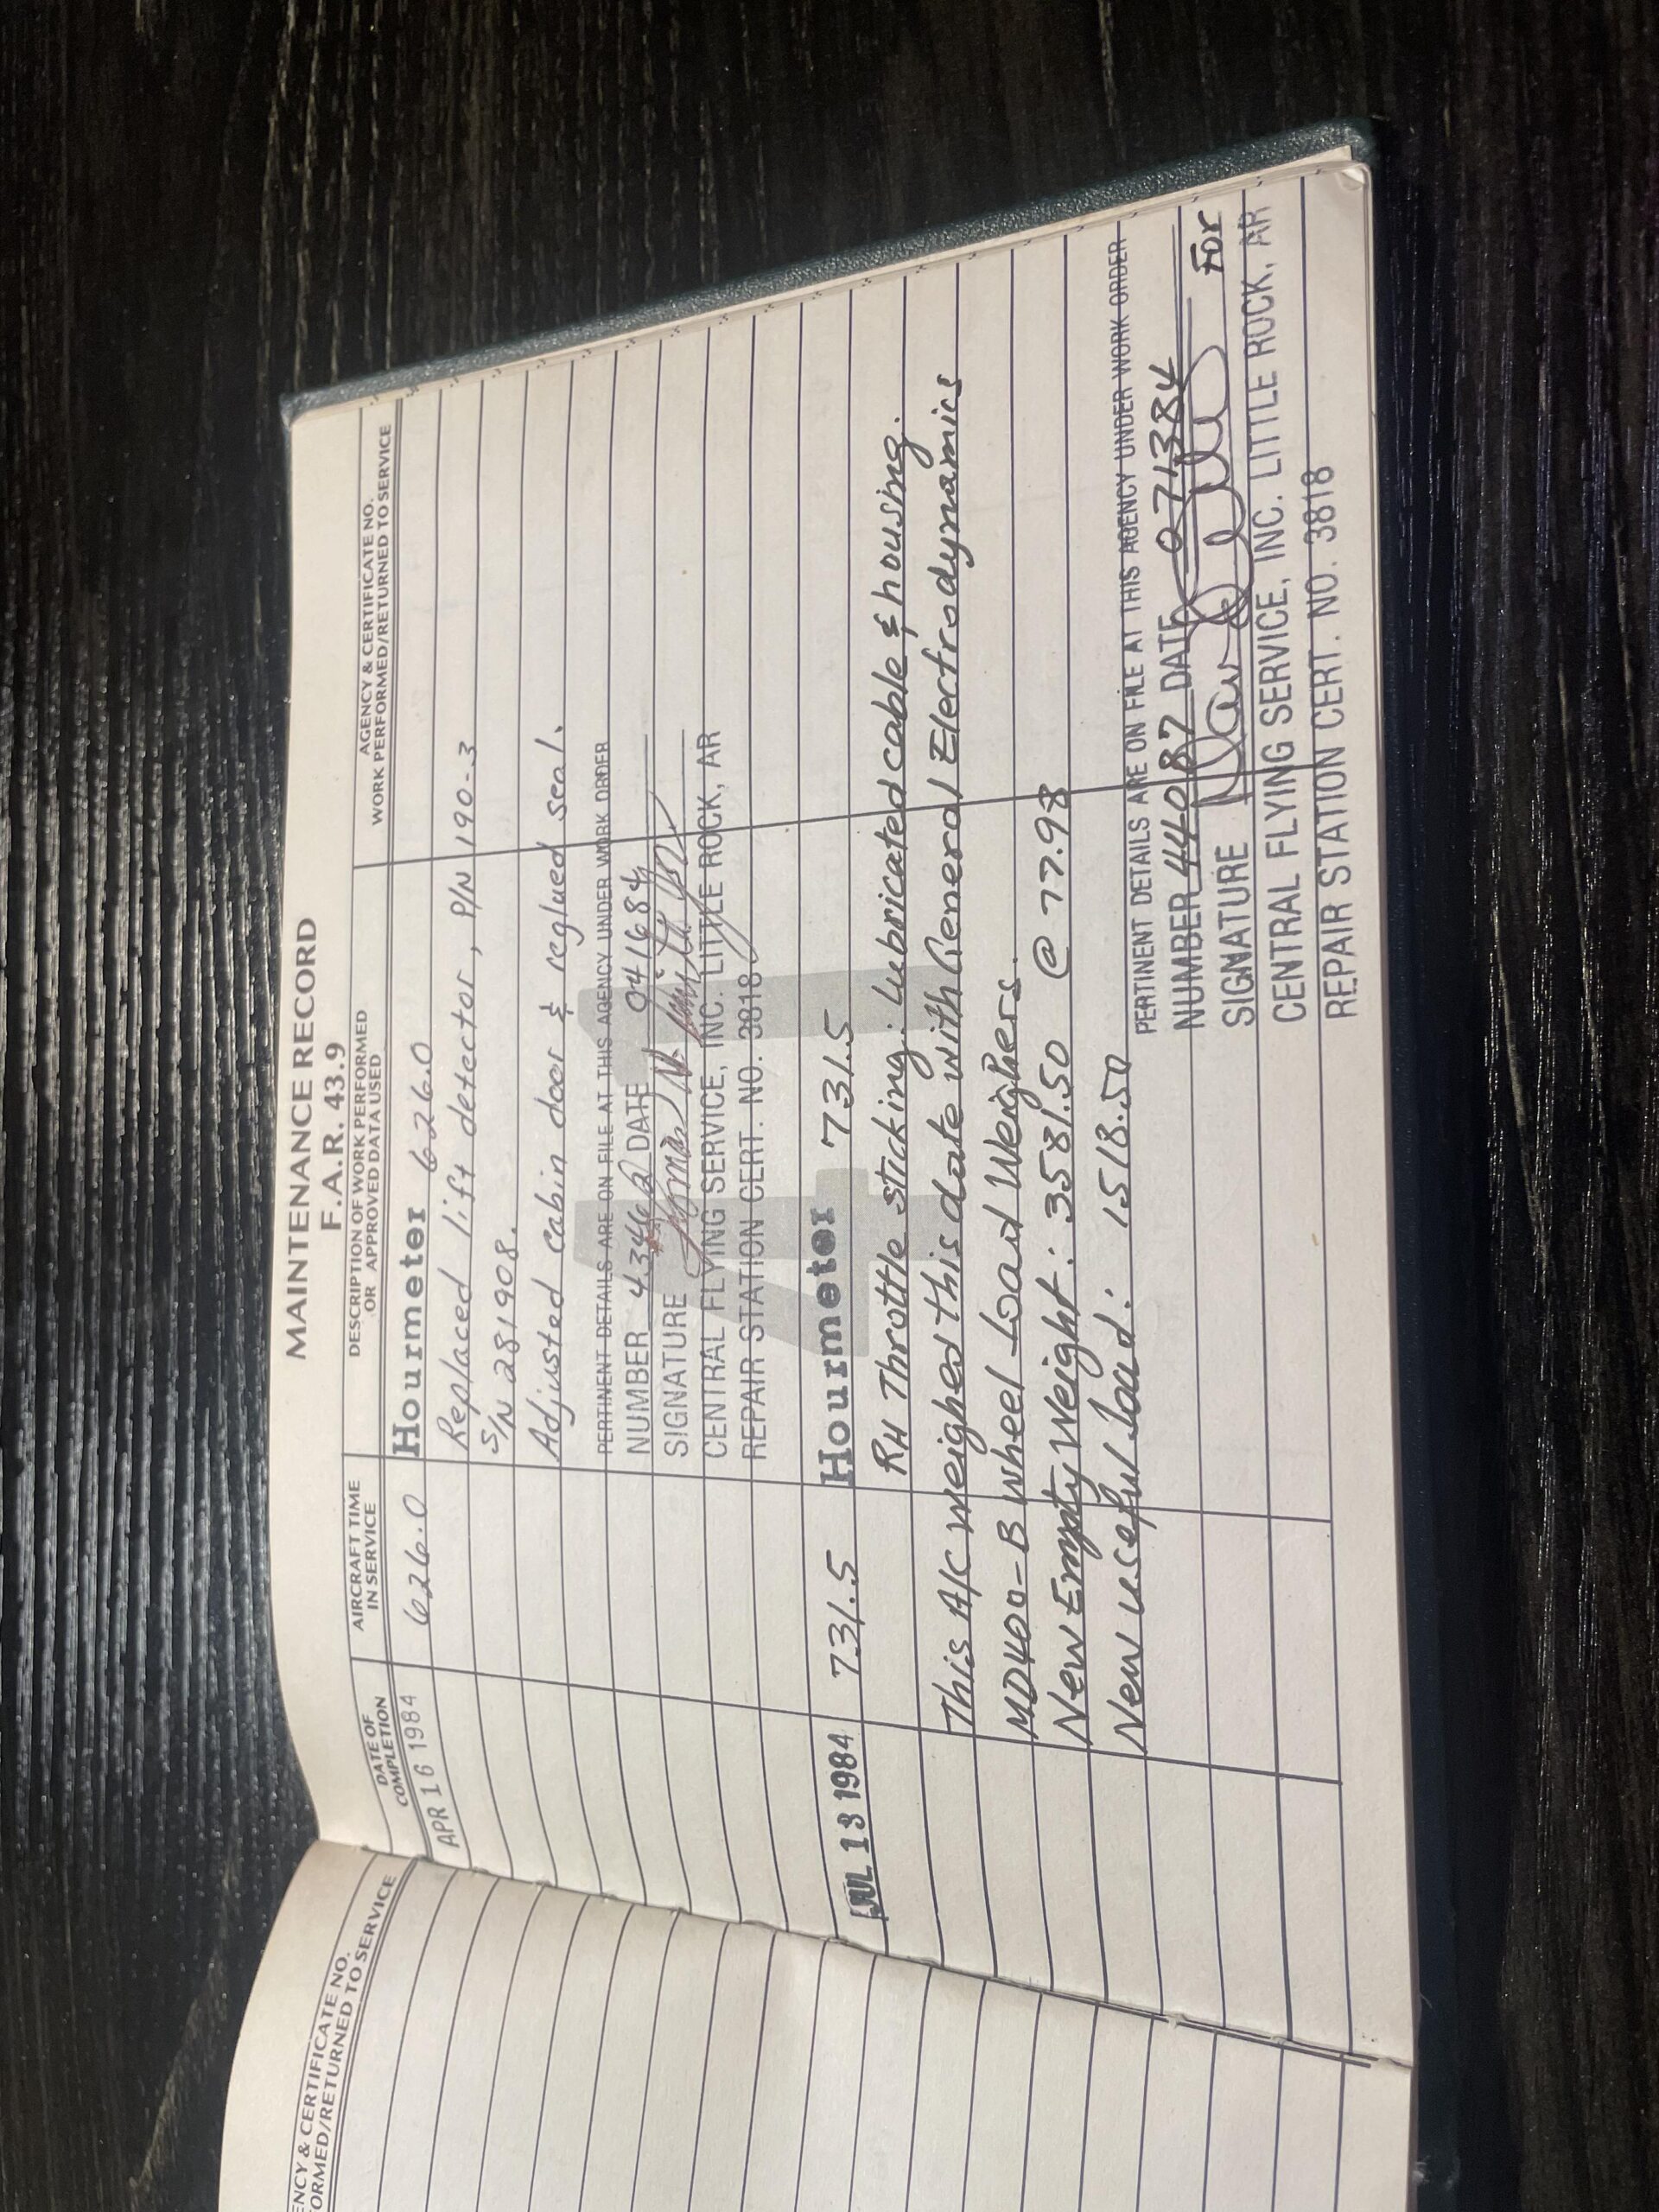 ENCY & CERTIFICATE NO.
FORMED/RETURNED TO SERVICE
MAINTENANCE RECORD
F.A.R. 43.9
DATE OF
COMPLETION
AIRCRAFT TIME
IN SERVICE
DESCRIPTION OF WORK PERFORMED
OR APPROVED DATA USED
AGENCY & CERTIFICATE NO.
WORK PERFORMED/RETURNED TO SERVICE
APR 16 1984 626.0 Hourmeter 626.0
Replaced lift detector, P/N 190-3
S/N 281908.
Adjusted cabin door & reglued seal.
PERTINENT DETAILS ARE ON FILE AT THIS AGENCY UNDER WORK ORDER
NUMBER DATE 041684
SIGNATURE
CENTRAL FLYING SERVICE, INC. LITTLE ROCK, AR
REPAIR STATION CERT. NO. 3818
41
JUL 13 1984 731.5 Hourmeter 731.5
RH Throttle sticking: Lubricated cable & housing.
This A/C weighed this date with General Electrodynamics
MD400-B wheel Load Weighers.
New Empty Weight: 3581.50 @ 77.98
New useful load: 1518.50
PERTINENT DETAILS ARE ON FILE AT THIS AGENCY UNDER WORK ORDER
NUMBER 44087 DATE 071384
SIGNATURE For
CENTRAL FLYING SERVICE, INC. LITTLE ROCK, AR
REPAIR STATION CERT. NO. 3818